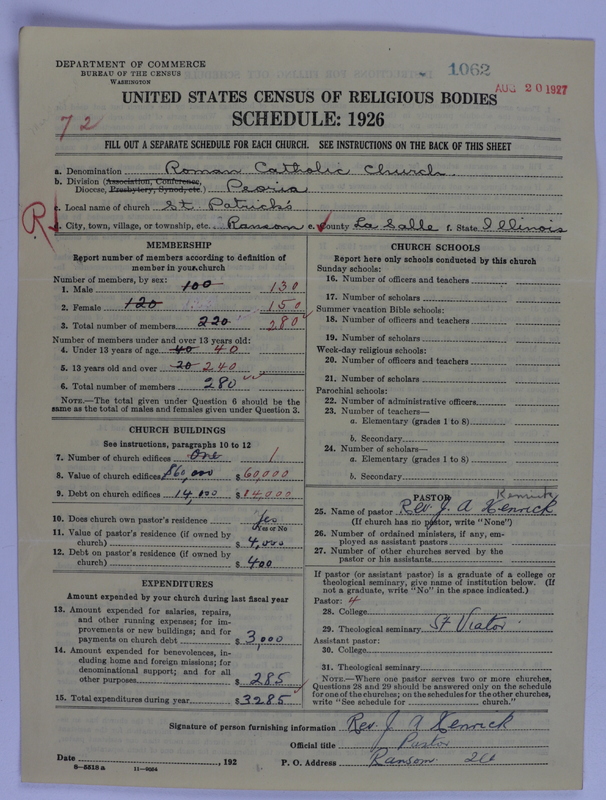 DEPARTMENT OF COMMERCE
BUREAU OF THE CENSUS
WASHINGTON
1062
AUG 20 1927
UNITED STATES CENSUS OF RELIGIOUS BODIES
SCHEDULE: 1926
72
FILL OUT A SEPARATE SCHEDULE FOR EACH CHURCH. SEE INSTRUCTIONS ON THE BACK OF THIS SHEET
a. Denomination Roman Catholic Church
b. Division (Association, Conference, Diocese, Presbytery, Synod, etc.) Peoria
c. Local name of church St. Patrick's
R
d. City, town, village, or township, etc. Ransom e. County La Salle f. State Illinois
MEMBERSHIP
Report number of members according to definition of member in your church
Number of members, by sex:
1. Male 100 130
2. Female 120 150
3. Total number of members 220 280
Number of members under and over 13 years old:
4. Under 13 years of age 40 40
5. 13 years old and over 20 240
6. Total number of members 280
NOTE.—The total given under Question 6 should be the same as the total of males and females given under Question 3.
CHURCH BUILDINGS
See instructions, paragraphs 10 to 12
7. Number of church edifices One 1
8. Value of church edifices $60,000 $60,000
9. Debt on church edifices 14,000 $14,000
10. Does church own pastor's residence Yes
Yes or No
11. Value of pastor's residence (if owned by church) $4,000
12. Debt on pastor's residence (if owned by church) $400
EXPENDITURES
Amount expended by your church during last fiscal year
13. Amount expended for salaries, repairs, and other running expenses; for improvements or new buildings; and for payments on church debt $3,000
14. Amount expended for benevolences, including home and foreign missions; for denominational support; and for all other purposes $285
15. Total expenditures during year $3285
CHURCH SCHOOLS
Report here only schools conducted by this church
Sunday schools:
16. Number of officers and teachers
17. Number of scholars
Summer vacation Bible schools:
18. Number of officers and teachers
19. Number of scholars
Week-day religious schools:
20. Number of officers and teachers
21. Number of scholars
Parochial schools:
22. Number of administrative officers
23. Number of teachers—
a. Elementary (grades 1 to 8)
b. Secondary
24. Number of scholars—
a. Elementary (grades 1 to 8)
b. Secondary
PASTOR
Kenrick
25. Name of pastor Rev. J. A Kenrick
(If church has no pastor, write "None")
26. Number of ordained ministers, if any, employed as assistant pastors
27. Number of other churches served by the pastor or his assistants
If pastor (or assistant pastor) is a graduate of a college or theological seminary, give name of institution below. (If not a graduate, write "No" in the space indicated.)
Pastor: 4
28. College
29. Theological seminary St Viator
Assistant pastor:
30. College
31. Theological seminary
NOTE.—Where one pastor serves two or more churches, Questions 28 and 29 should be answered only on the schedule for one of the churches; on the schedules for the other churches, write "See schedule for church."
Signature of person furnishing information Rev. J. A Kenrick
Official title Pastor
Date , 192 P. O. Address Ransom Ill
8—5518 a 11—9064